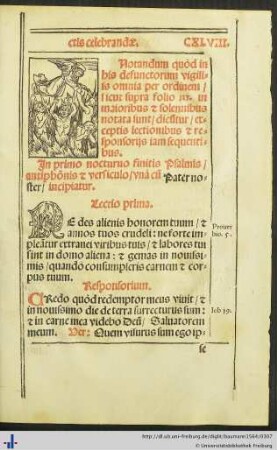 ctis celebrandæ.
CXLVIII.
Notandum quòd in
his defunctorum vigili-
is omnia per ordinem/
sicut supra folio in
maioribus & solennibus
notata sunt/ dicãtur/ ex-
ceptis lectionibus & re-
sponsorijs iam sequenti-
bus.
In primo nocturno finitis Psalmis/
antiphõnis & versiculo/ vnà cũ Pater no-
ster/ incipiatur.
Lectio prima.
NE des alienis honorem tuum/ &
annos tuos crudeli: ne forte im-
pleãtur extranei viribus tuis/ & labores tui
sint in domo aliena: & gemas in nouissi-
mis/ quando consumpseris carnem & cor-
pus tuum.
Prouer
bio. 5.
Responsorium.
CRedo quòd redemptor meus viuit/ &
in nouissimo die de terra surrecturus sum:
& in carne mea videbo Deũ/ Saluatorem
meum. Ver: Quem visurus sum ego ip-
Iob 19.
se
http://dl.ub.uni-freiburg.de/diglit/baumann1564/0307
© Universitätsbibliothek Freiburg